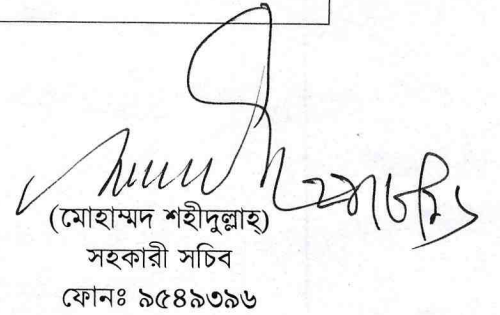 (মোহাম্মদ শহীদুল্লাহ্)
সহকারী সচিব
ফোনঃ ৯৫৪৯৩৯৬